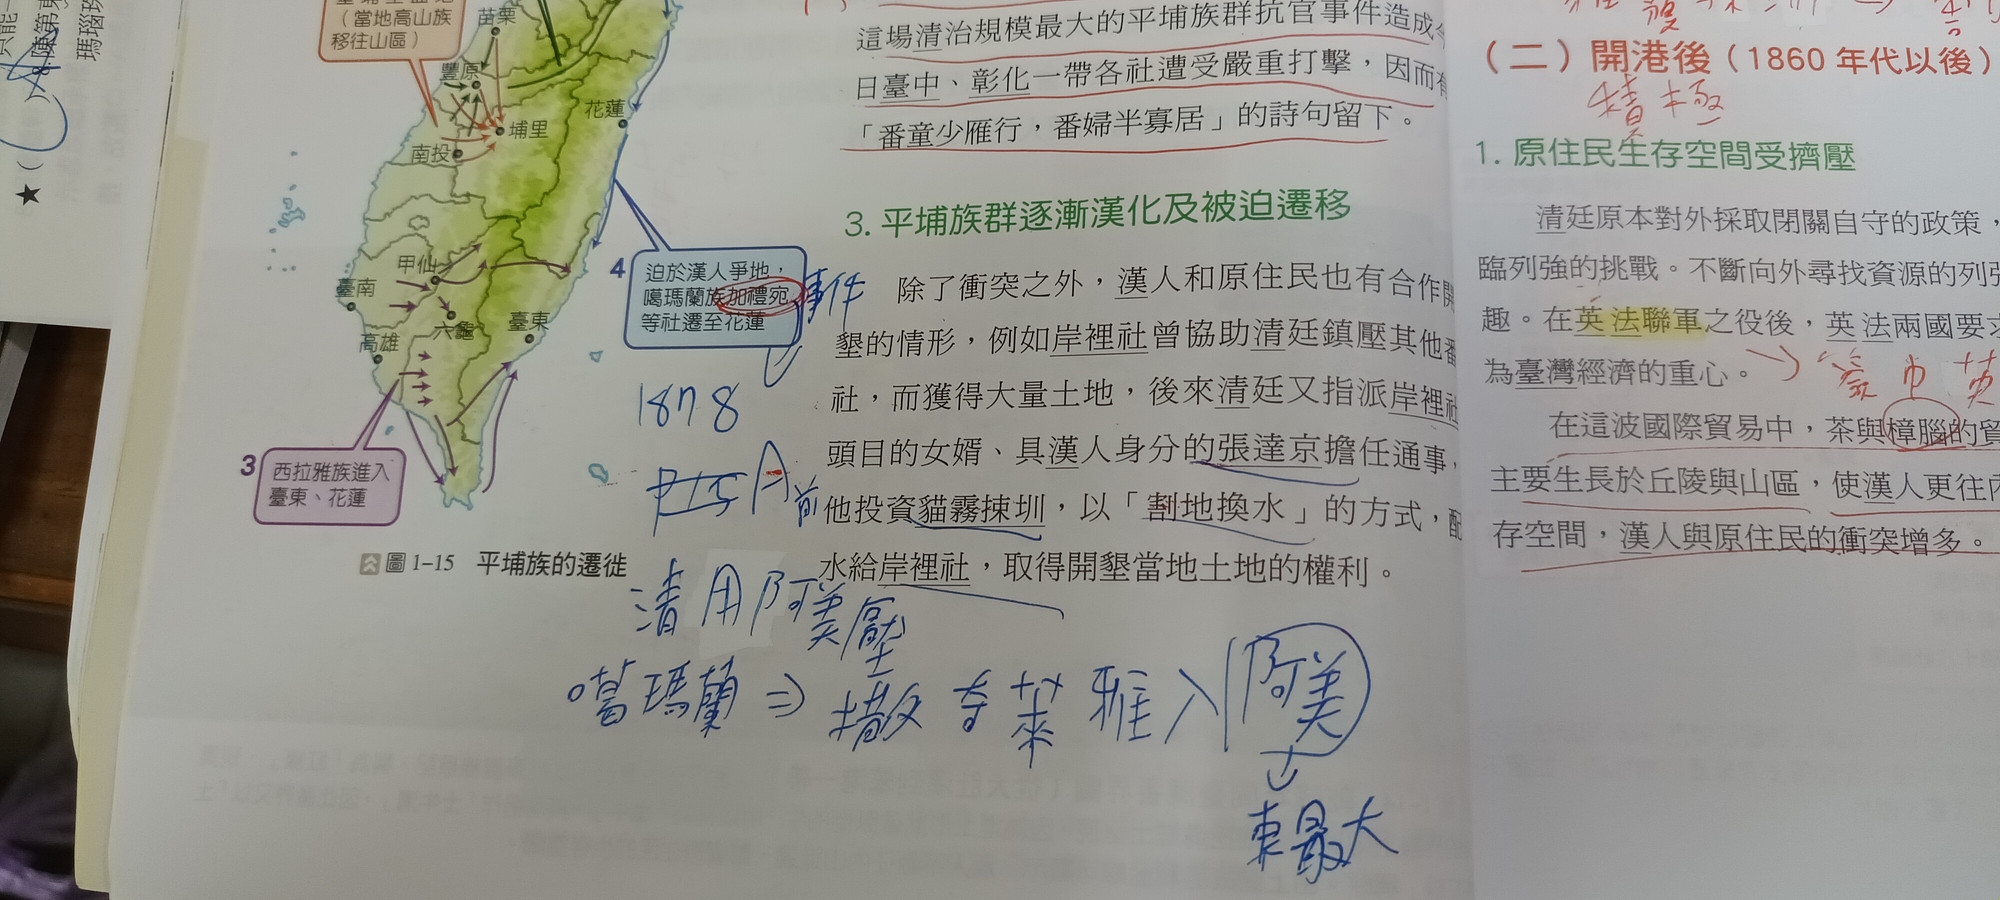 （當地高山族
移往山區）
苗栗
豐原
花蓮
埔里
南投
甲仙
臺南
六龜
臺東
高雄
4 迫於漢人爭地，
噶瑪蘭族加禮宛
等社遷至花蓮
事件
3 西拉雅族進入
臺東、花蓮
圖1-15 平埔族的遷徙
1878
前
清用阿美壓
噶瑪蘭⇒撒奇萊雅入阿美
東最大
這場清治規模最大的平埔族群抗官事件造成
日臺中、彰化一帶各社遭受嚴重打擊，因而有
「番童少雁行，番婦半寡居」的詩句留下。
3. 平埔族群逐漸漢化及被迫遷移
除了衝突之外，漢人和原住民也有合作開
墾的情形，例如岸裡社曾協助清廷鎮壓其他番
社，而獲得大量土地，後來清廷又指派岸裡社
頭目的女婿、具漢人身分的張達京擔任通事，
他投資貓霧捒圳，以「割地換水」的方式，配
水給岸裡社，取得開墾當地土地的權利。
（二）開港後（1860 年代以後）
積極
1. 原住民生存空間受擠壓
清廷原本對外採取閉關自守的政策，
臨列強的挑戰。不斷向外尋找資源的列強
趣。在英法聯軍之役後，英法兩國要求
為臺灣經濟的重心。
在這波國際貿易中，茶與樟腦的貿
主要生長於丘陵與山區，使漢人更往內
存空間，漢人與原住民的衝突增多。
陳第東
瑪瑙珠
★（